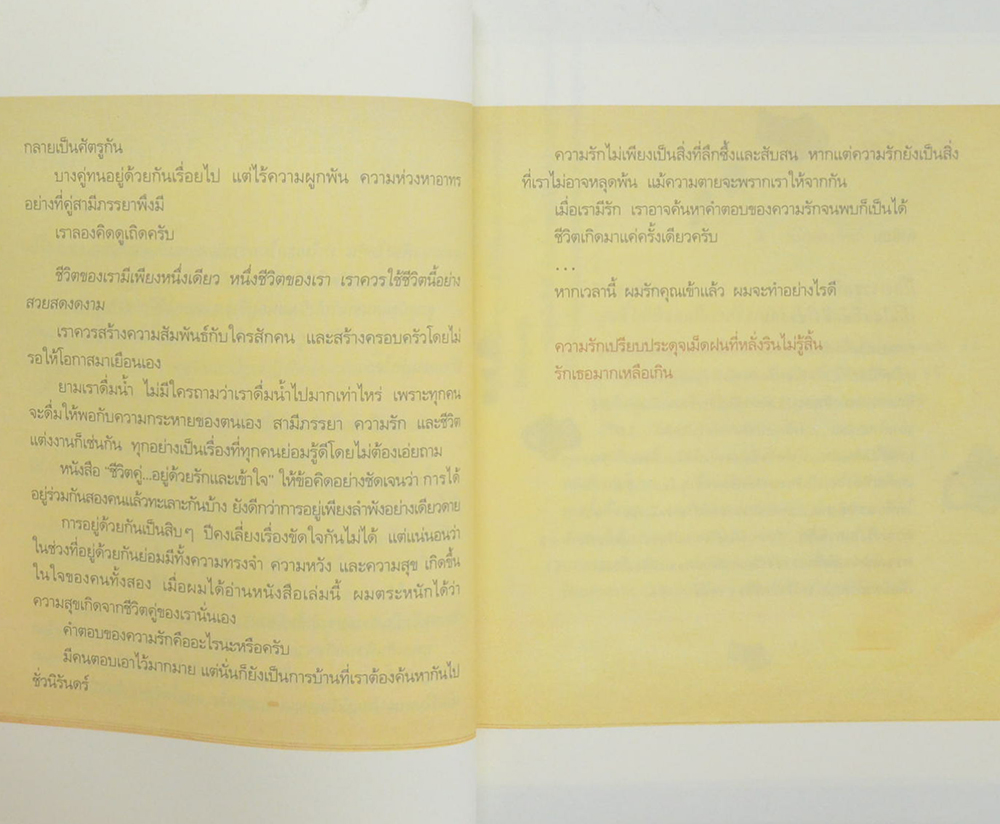 กลายเป็นศัตรูกัน
บางคู่ทนอยู่ด้วยกันเรื่อยไป แต่ไร้ความผูกพัน ความห่วงหาอาทร
อย่างที่คู่สามีภรรยาพึงมี
เราลองคิดดูเถิดครับ
ชีวิตของเรามีเพียงหนึ่งเดียว หนึ่งชีวิตของเรา เราควรใช้ชีวิตนี้อย่าง
สวยสดงดงาม
เราควรสร้างความสัมพันธ์กับใครสักคน และสร้างครอบครัวโดยไม่
รอให้โอกาสมาเยือนเอง
ยามเราดื่มน้ำ ไม่มีใครถามว่าเราดื่มน้ำไปมากเท่าไหร่ เพราะทุกคน
จะดื่มให้พอกับความกระหายของตนเอง สามีภรรยา ความรัก และชีวิต
แต่งงานก็เช่นกัน ทุกอย่างเป็นเรื่องที่ทุกคนย่อมรู้ดีโดยไม่ต้องเอ่ยถาม
หนังสือ "ชีวิตคู่...อยู่ด้วยรักและเข้าใจ" ให้ข้อคิดอย่างชัดเจนว่า การได้
อยู่ร่วมกันสองคนแล้วทะเลาะกันบ้าง ยังดีกว่าการอยู่เพียงลำพังอย่างเดียวดาย
การอยู่ด้วยกันเป็นสิบๆ ปีคงเลี่ยงเรื่องขัดใจกันไม่ได้ แต่แน่นอนว่า
ในช่วงที่อยู่ด้วยกันย่อมมีทั้งความทรงจำ ความหวัง และความสุข เกิดขึ้น
ในใจของคนทั้งสอง เมื่อผมได้อ่านหนังสือเล่มนี้ ผมตระหนักได้ว่า
ความสุขเกิดจากชีวิตคู่ของเรานั่นเอง
คำตอบของความรักคืออะไรนะหรือครับ
มีคนตอบเอาไว้มากมาย แต่นั่นก็ยังเป็นการบ้านที่เราต้องค้นหากันไป
ชั่วนิรันดร์
ความรักไม่เพียงเป็นสิ่งที่ลึกซึ้งและสับสน หากแต่ความรักยังเป็นสิ่ง
ที่เราไม่อาจหลุดพ้น แม้ความตายจะพรากเราให้จากกัน
เมื่อเรามีรัก เราอาจค้นหาคำตอบของความรักจนพบก็เป็นได้
ชีวิตเกิดมาแค่ครั้งเดียวครับ
...
หากเวลานี้ ผมรักคุณเข้าแล้ว ผมจะทำอย่างไรดี
ความรักเปรียบประดุจเม็ดฝนที่หลั่งรินไม่รู้สิ้น
รักเธอมากเหลือเกิน